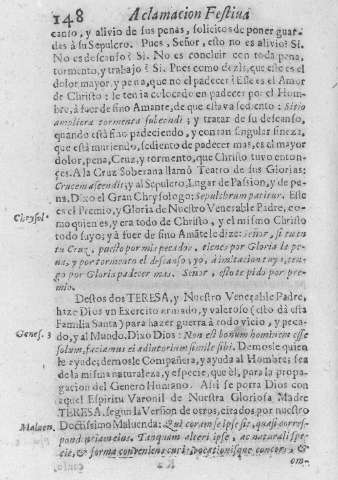 148 Aclamacion Festiva
canto, y alivio de sus penas, solicitos de poner guar-
das à su Sepulcro. Pues, Señor, esto no es alivio? Si.
No es descanso? Si. No es concluir con toda pena,
tormento, y trabajo? Si. Pues como dezis, que este es el
dolor mayor y pena, que no el padecer? Este es el Amor
de Christo: le tenia colocado en padecer por el Hom-
bre, à fuer de fino Amante, de que estava sediento: Sitio
ampliora tormenta subeundi; y tratar de su descanso,
quando està fino padeciendo, y con tan singular fineza,
que està muriendo, sediento de padecer mas, es el mayor
dolor, pena, Cruz, y tormento, que Christo tuvo enton-
çes. A la Cruz Soberana llamò Teatro de sus Glorias:
Crucem ascendit; y al Sepulcro, Lugar de Passion, y de pe-
na. Dixo el Gran Chrysologo: Sepulchrum patitur. Este
Chrysol. es el Premio, y Gloria de Nuestro Venerable Padre, co-
mo quien es, y era todo de Christo, y el mismo Christo
todo suyo; y à fuer de fino Amãte le dize: Señor, si tu en
tu Cruz, puesto por mis pecados, tienes por Gloria la pe-
na, y por tormento el descanso: yo, à imitacion tuya, ten-
go por Gloria padecer mas. Señor, esto te pido por pre-
mio.
Destos dos TERESA, y Nuestro Venerable Padre,
haze Dios un Exercito armado, y valeroso (esto dà esta
Familia Santa) para hazer guerra à todo vicio, y peca-
Genes. 3 do, y al Mundo. Dixo Dios: Non est bonum hominem esse
solum, faciamus ei adiutorium simile sibi. Demosle quien
le ayude; demosle Compañera, y ayuda al Hombre; sea
de la misma naturaleza, y especie, que èl, para la propa-
gacion del Genero Humano. Assi se porta Dios con
aquel Espiritu Varonil de Nuestra Gloriosa Madre
TERESA, segun la Version de otros, citados por nuestro
Maluen. Doctissimo Maluenda: Qui coram se ipse sit, quasi corres-
pondentiam eius. Tanquam alteri ipse, ac naturali spe-
cie, & forma conveniens cui vocationisque concors, &
om-